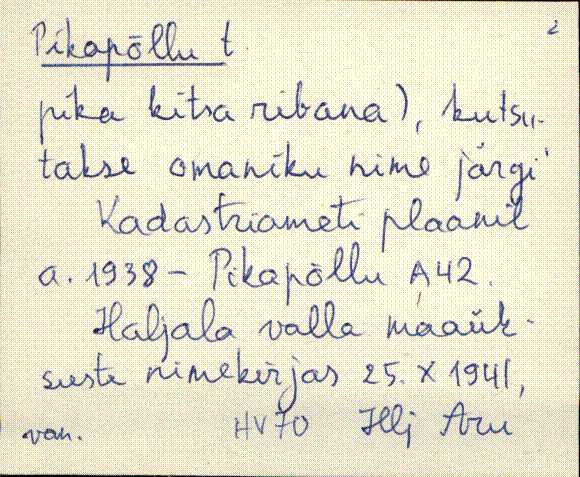 2
Pikapõllu t.
pika kitsa ribana), kutsu-
takse omaniku nime järgi
Kadastriameti plaanil
a. 1938 – Pikapõllu A42.
Haljala valla maaük-
suste nimekirjas 25. X 1941,
van. HV70 Hlj Aru